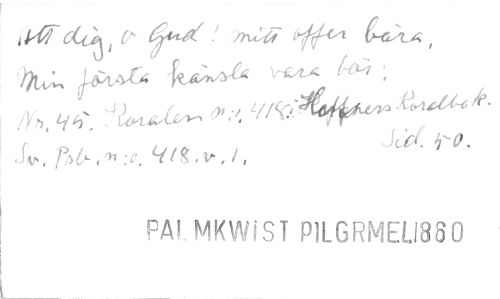 Att dig, o Gud! mitt offer bära,
Min första känsla vara bör;
Nr. 45. Koralen n:o, 418 i Hoffners Koralbok.
Sid. 50.
Sv. Psb. n:o. 418. v. 1.
PALMKWIST PILGRMEL1880